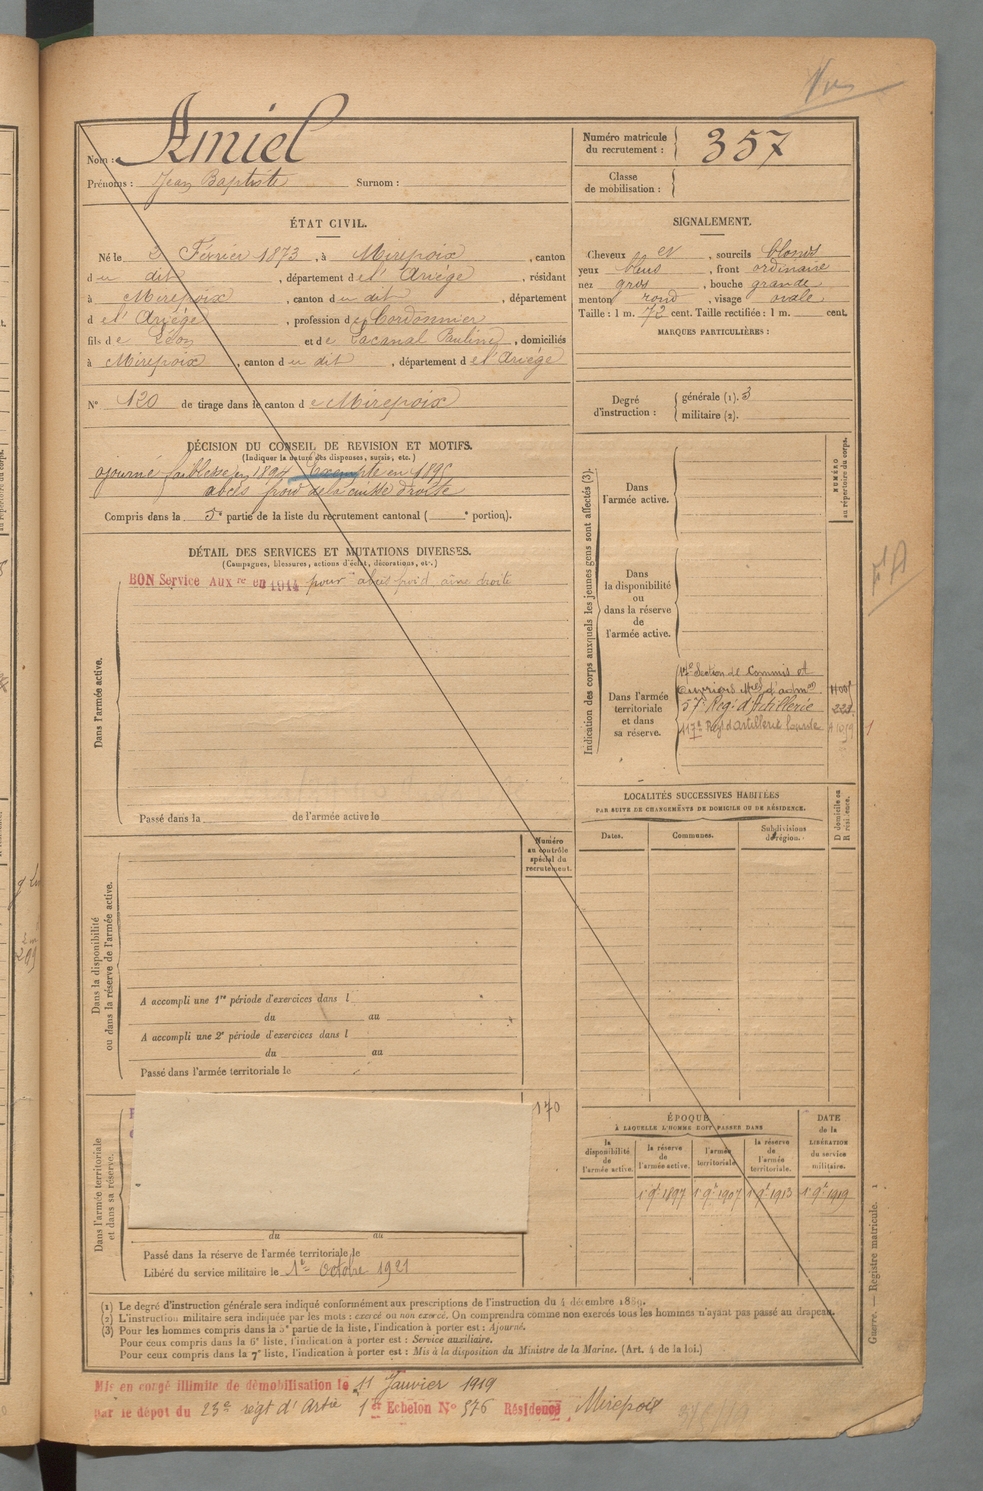 Vu
Nom : Amiel
Prénoms : Jean Baptiste Surnom :
Numéro matricule du recrutement : 357
Classe de mobilisation :
ÉTAT CIVIL.
Né le 2 Février 1873, à Mirepoix, canton
du dit, département de l'Ariège, résidant
à Mirepoix, canton du dit, département
de l'Ariège, profession de Cordonnier
fils de Léon et de Lacanal Pauline, domiciliés
à Mirepoix, canton du dit, département de l'Ariège
N° 120 de tirage dans le canton de Mirepoix
SIGNALEMENT.
Cheveux et, sourcils blonds
yeux bleus, front ordinaire
nez gros, bouche grande
menton rond, visage ovale
Taille : 1 m. 72 cent. Taille rectifiée : 1 m. cent.
MARQUES PARTICULIÈRES :
Degré d'instruction : générale (1). 3
militaire (2).
DÉCISION DU CONSEIL DE REVISION ET MOTIFS.
(Indiquer la nature des dispenses, sursis, etc.)
ajourné faiblesse en 1894 Exempté en 1895
abcès froid de la cuisse droite
Compris dans la 5e partie de la liste du recrutement cantonal ( e portion).
DÉTAIL DES SERVICES ET MUTATIONS DIVERSES.
(Campagnes, blessures, actions d'éclat, décorations, etc.)
BON Service Auxre en 1914 pour abcès froid aîne droite
Dans l'armée active.
Passé dans la de l'armée active le
Indication des corps auxquels les jeunes gens sont affectés (3).
NUMÉRO au répertoire du corps.
Dans l'armée active.
Dans la disponibilité ou dans la réserve de l'armée active.
Dans l'armée territoriale et dans sa réserve.
Section de Commis et
Ouvriers Mres d'admon
57e Regt d'Artillerie
117e Regt d'artillerie lourde
LOCALITÉS SUCCESSIVES HABITÉES
PAR SUITE DE CHANGEMENTS DE DOMICILE OU DE RÉSIDENCE.
Dates. Communes. Subdivisions de région.
D domicile ou R résidence.
Numéro au contrôle spécial du recrutement.
Dans la disponibilité ou dans la réserve de l'armée active.
A accompli une 1re période d'exercices dans l
du au
A accompli une 2e période d'exercices dans l
du au
Passé dans l'armée territoriale le
170
Dans l'armée territoriale et dans sa réserve.
du au
Passé dans la réserve de l'armée territoriale le
Libéré du service militaire le 1er Octobre 1921
ÉPOQUE
À LAQUELLE L'HOMME DOIT PASSER DANS
la disponibilité de l'armée active.
la réserve de l'armée active.
l'armée territoriale.
la réserve de l'armée territoriale.
DATE de la LIBÉRATION du service militaire.
1 9e 1897 1 9e 1907 1 9e 1913 1 9e 1919
(1) Le degré d'instruction générale sera indiqué conformément aux prescriptions de l'instruction du 4 décembre 1889.
(2) L'instruction militaire sera indiquée par les mots : exercé ou non exercé. On comprendra comme non exercés tous les hommes n'ayant pas passé au drapeau.
(3) Pour les hommes compris dans la 5e partie de la liste, l'indication à porter est : Ajourné.
Pour ceux compris dans la 6e liste, l'indication à porter est : Service auxiliaire.
Pour ceux compris dans la 7e liste, l'indication à porter est : Mis à la disposition du Ministre de la Marine. (Art. 4 de la loi.)
Guerre. — Registre matricule. 1
Mis en congé illimité de démobilisation le 11 Janvier 1919
par le dépôt du 23e regt d'Artie 1er Echelon N° 576 Résidence Mirepoix